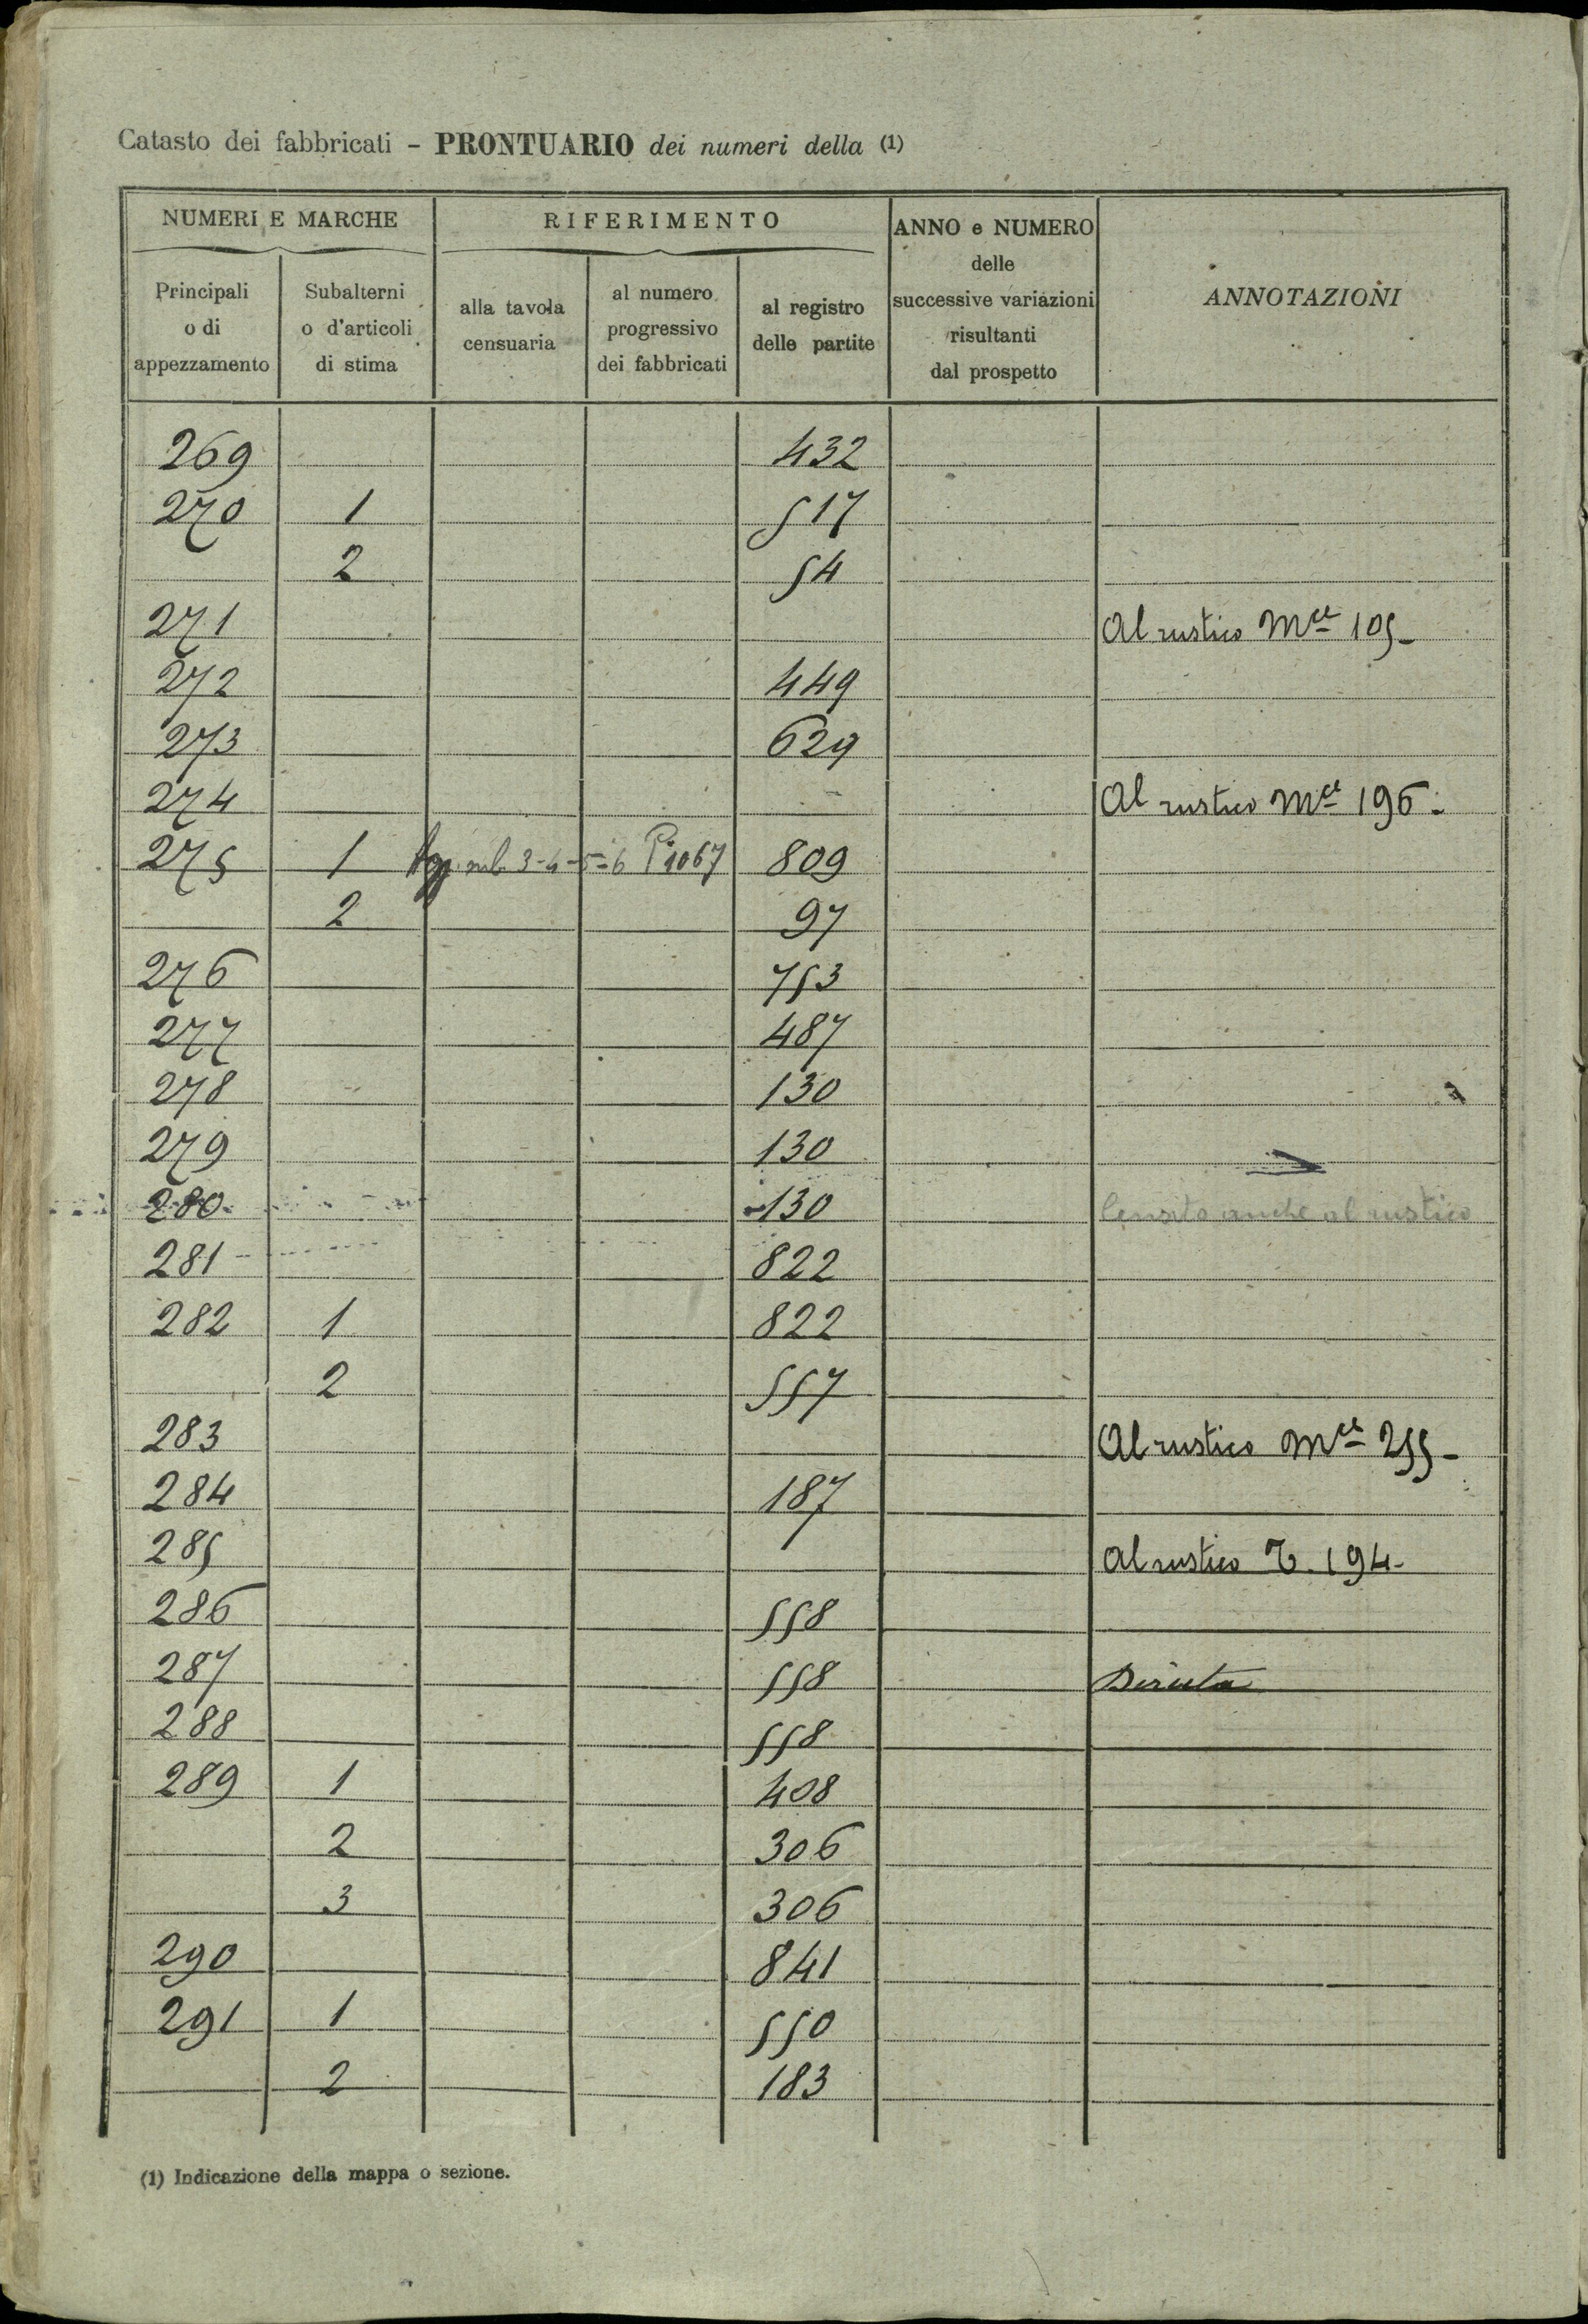 Catasto dei fabbricati – PRONTUARIO dei numeri della (1)
NUMERI E MARCHE RIFERIMENTO ANNO e NUMERO delle successive variazioni risultanti dal prospetto ANNOTAZIONI
Principali o di appezzamento Subalterni o d'articoli di stima alla tavola censuaria al numero progressivo dei fabbricati al registro delle partite
269 432
270 1 517
2 54
271 Al rustico Mce 105-
272 449
273 629
274 Al rustico Mce 196-
275 1 sub 3-4-5-6 1067 809
2 97
276 753
277 487
278 130
279 130
280 130 Censito anche al rustico
281 822
282 1 822
2 557
283 Al rustico Mce 255-
284 187
285 Al rustico 194-
286 558
287 558 Diruta
288 558
289 1 408
2 306
3 306
290 841
291 1 550
2 183
(1) Indicazione della mappa o sezione.